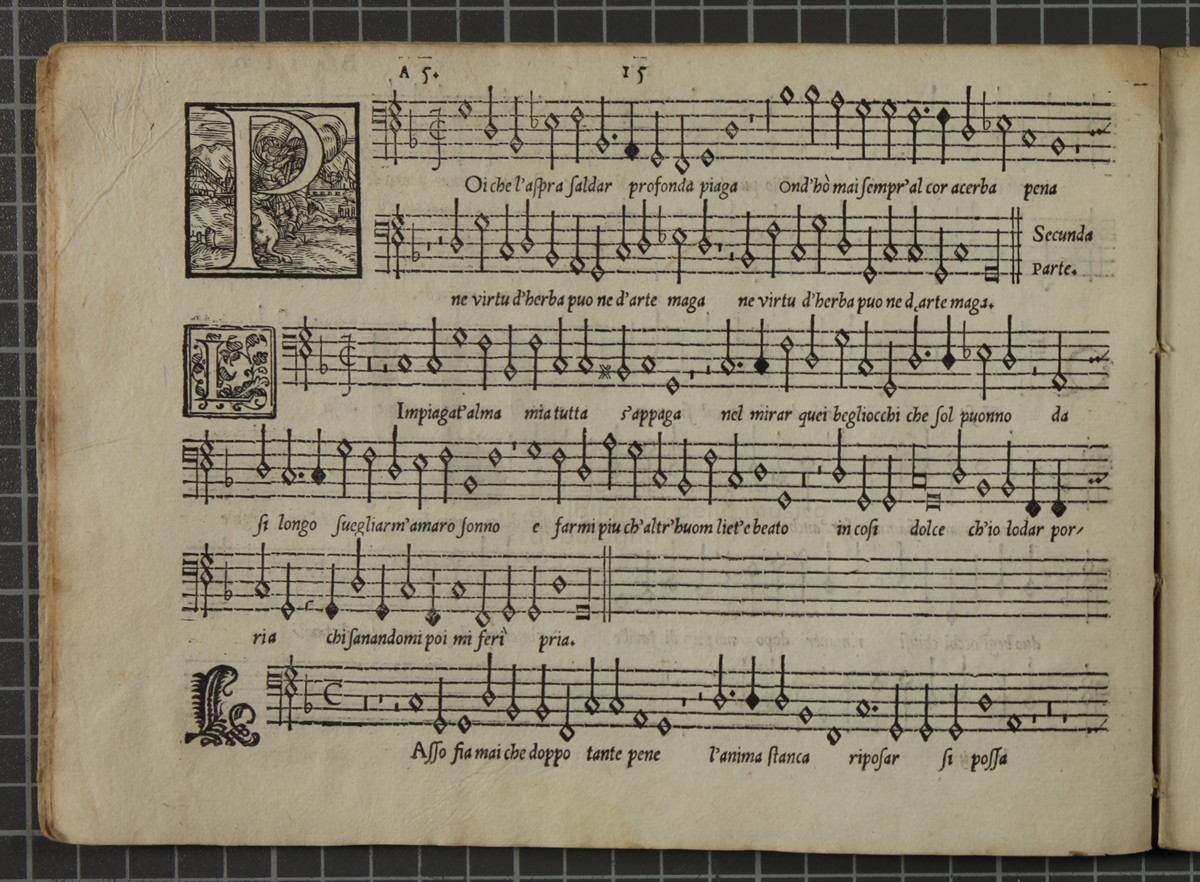 A 5. 15
P Oi che l'aſpra ſaldar profonda piaga Ond'hò mai ſempr'al cor acerba pena
Secunda
Parte.
ne virtu d'herba puo ne d'arte maga ne virtu d'herba puo ne d,arte maga.
L Impiagat'alma mia tutta s'appaga nel mirar quei begliocchi che ſol puonno da
ſi longo ſuegliarm'amaro ſonno e farmi piu ch'altr'huom liet'e beato in coſi dolce ch'io lodar por-
ria chi ſanandomi poi mi ferì pria.
L Aſſo fia mai che doppo tante pene l'anima ſtanca ripoſar ſi poſſa